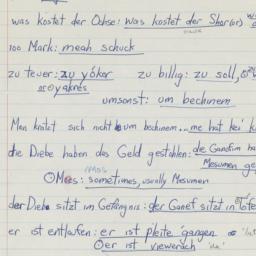 was kostet der Ochse: was kostet der Shor(er)
100 Mark: meah schuck
zu teuer: zu yóker zu billig: zu soll,
yakres
umsonst: um bechinem
Man kratzt sich nicht um bechinem... me hat kei
die Diebe haben das Geld gestohlen: die Ganefim ha
Mesumen ge
Mees: sometimes, usually Mesumen
der Dieb sitzt im Gefängnis: der Ganef sitzt in
er ist entlaufen: er ist pleite 'gangen
er ist viewerach